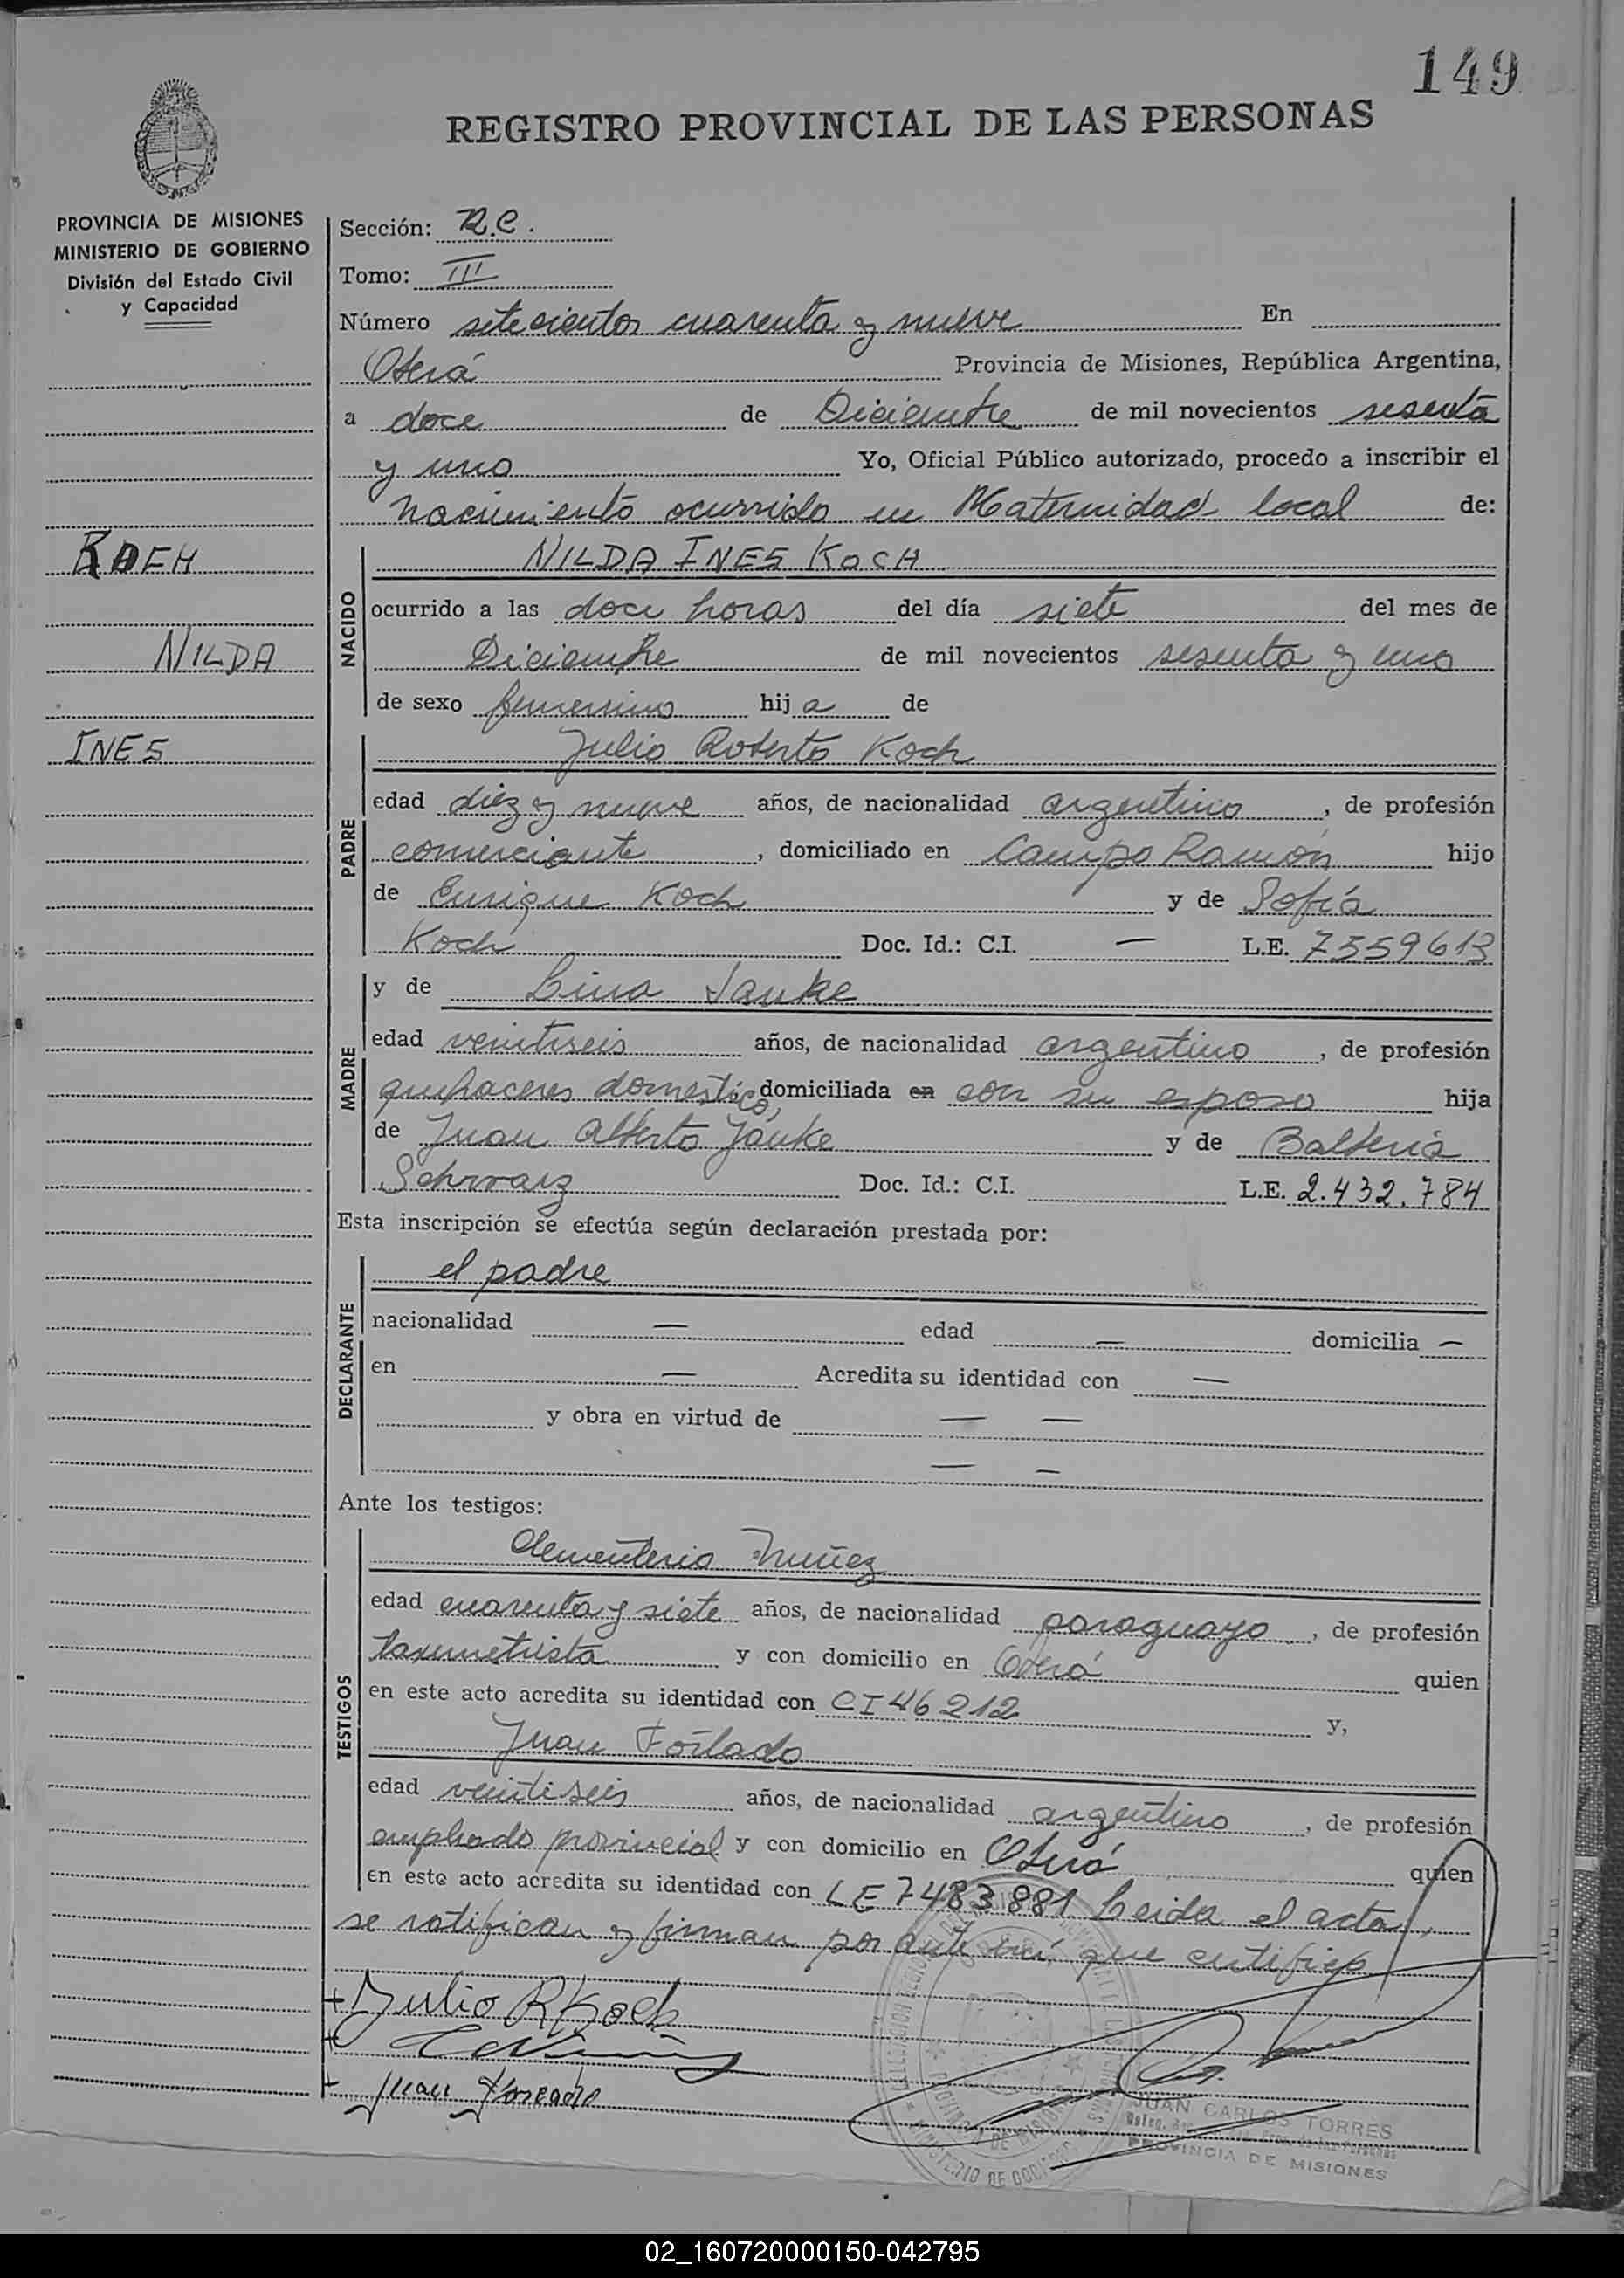 149
REGISTRO PROVINCIAL DE LAS PERSONAS
PROVINCIA DE MISIONES
MINISTERIO DE GOBIERNO
División del Estado Civil
y Capacidad
KOCH
NILDA
INES
Sección: R.C.
Tomo: III
Número setecientos cuarenta y nueve En
Oberá Provincia de Misiones, República Argentina,
a doce de Diciembre de mil novecientos sesenta
y uno Yo, Oficial Público autorizado, procedo a inscribir el
nacimiento ocurrido en Maternidad local de:
NACIDO
NILDA INES KOCH
ocurrido a las doce horas del día siete del mes de
Diciembre de mil novecientos sesenta y uno
de sexo femenino hija de
PADRE
Julio Roberto Koch
edad diez y nueve años, de nacionalidad argentino, de profesión
comerciante, domiciliado en Campo Ramón hijo
de Enrique Koch y de Sofía
Koch Doc. Id.: C.I. — L.E. 7559613
MADRE
y de Lina Janke
edad veintiseis años, de nacionalidad argentino, de profesión
quehaceres domestico, domiciliada en con su esposo hija
de Juan Alberto Janke y de
Schwarz Doc. Id.: C.I. L.E. 2.432.784
Esta inscripción se efectúa según declaración prestada por:
DECLARANTE
el padre
nacionalidad — edad — domicilia —
en — Acredita su identidad con —
y obra en virtud de — —
— —
Ante los testigos:
TESTIGOS
Clementerio Nuñez
edad cuarenta y siete años, de nacionalidad paraguayo, de profesión
taximetrista y con domicilio en Oberá quien
en este acto acredita su identidad con CI 46212 y,
Juan
edad veintiseis años, de nacionalidad argentino, de profesión
empleado provincial y con domicilio en Oberá quien
en este acto acredita su identidad con LE 7483881 Leida el acta,
se ratifican y firman por ante mí, que certifico
Julio R Koch
Juan
JUAN CARLOS TORRES
PROVINCIA DE MISIONES
02_160720000150-042795